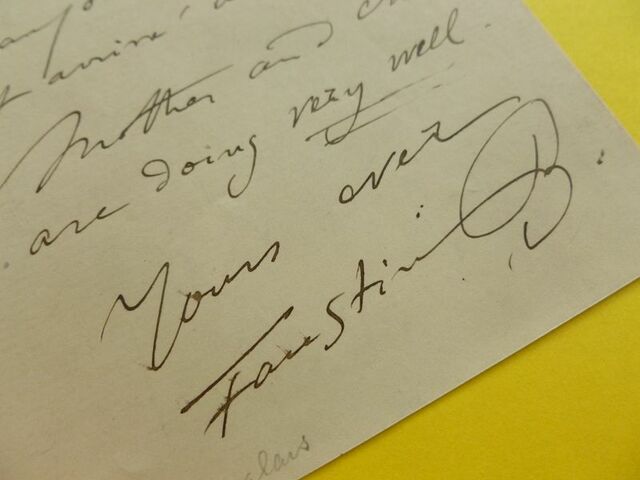 arrive'
Mother and
are doing very well.
Yours ever
Faustin B.